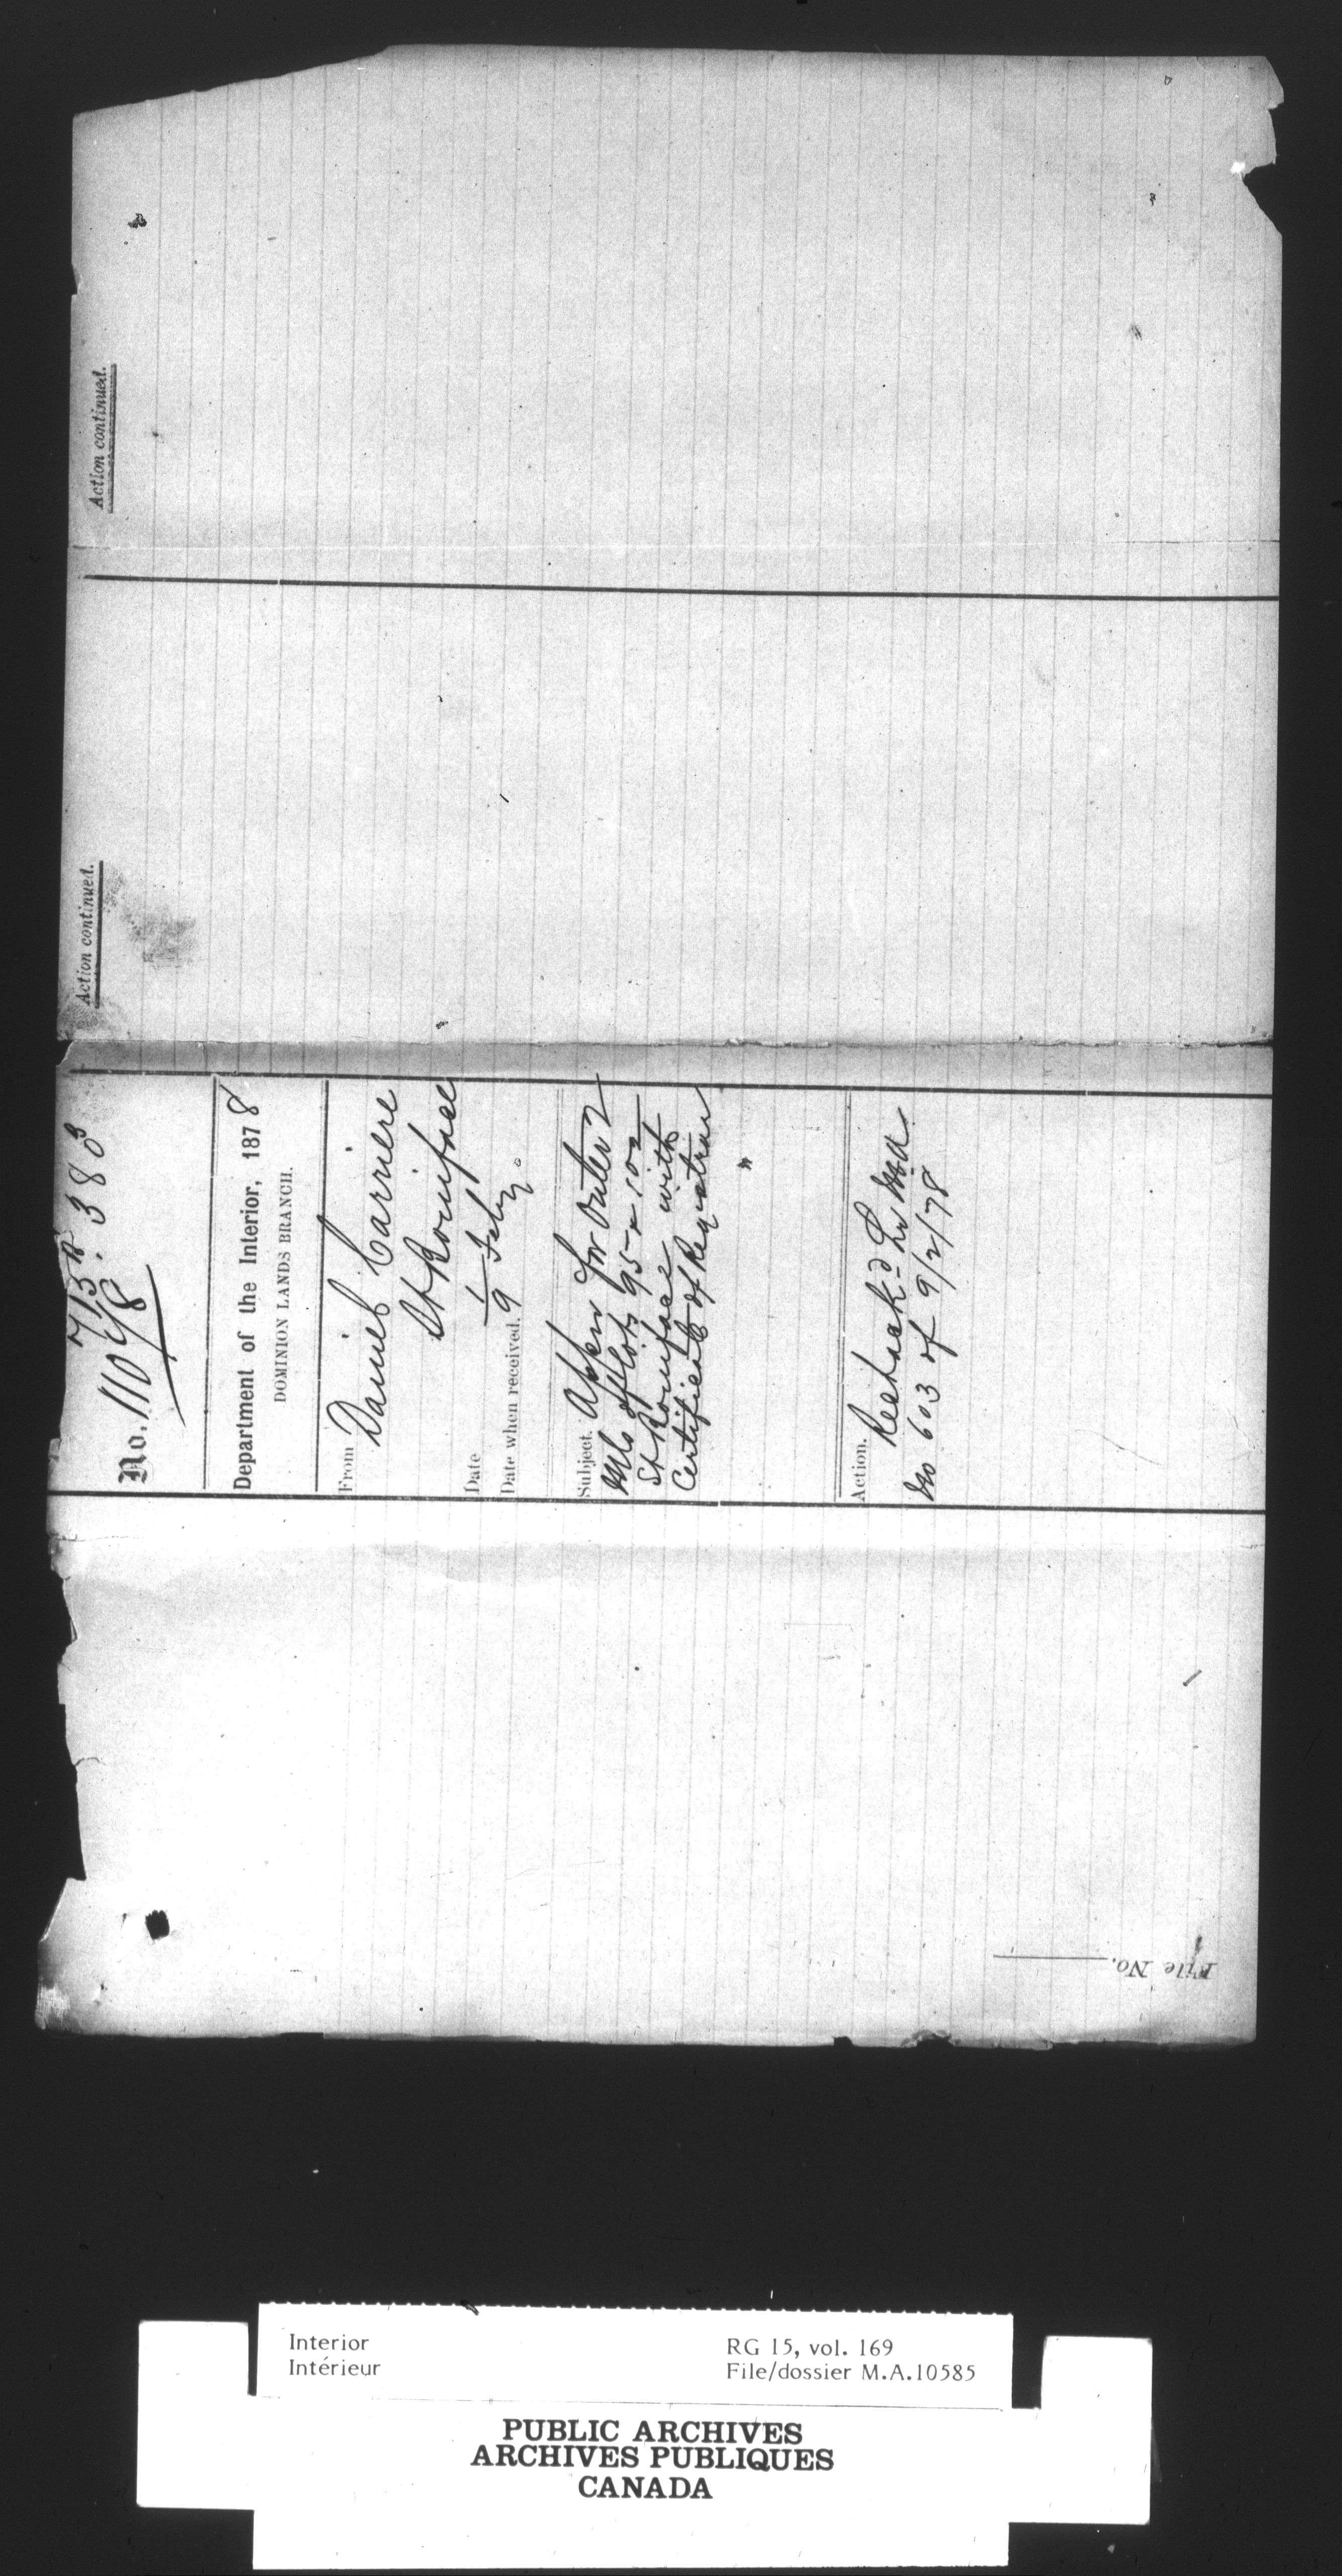 Action continued.
Action continued.
713 R. 380
No. 110 4/8
Department of the Interior, 1878
DOMINION LANDS BRANCH.
From Daniel Carriere
St Boniface
Date 1 Feby
Date when received. 9 "
Subject. Appn for Outer 2
Mls of Lots 95 & 102
St Boniface with
Certificate of Registrar
"
Action.
No 603 of 9/2/78
File No.
Interior
Intérieur
RG 15, vol. 169
File/dossier M.A.10585
PUBLIC ARCHIVES
ARCHIVES PUBLIQUES
CANADA